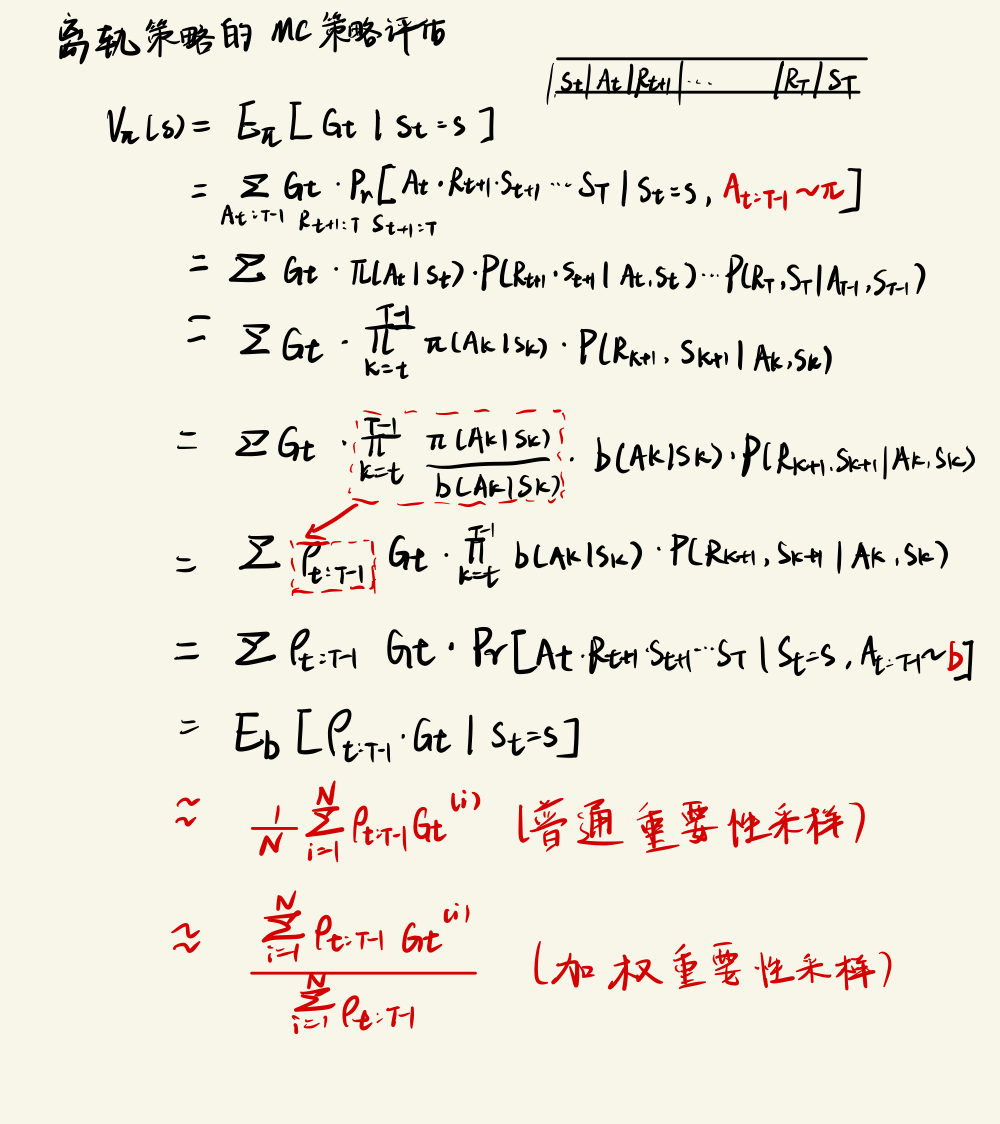 离轨策略的 MC 策略评估
| St | At | Rt+1 | ... | RT | ST
Vπ(s) = Eπ [ Gt | St = s ]
= Σ Gt · Pr [ At · Rt+1 · St+1 ... ST | St = s , At:T-1 ~ π ]
At:T-1 Rt+1:T St+1:T
= Σ Gt · π(At | St) · P(Rt+1 · St+1 | At, St) ... P(RT, ST | AT-1, ST-1)
= Σ Gt · ∏_{k=t}^{T-1} π(Ak | Sk) · P(Rk+1, Sk+1 | Ak, Sk)
= Σ Gt · ∏_{k=t}^{T-1} π(Ak | Sk) / b(Ak | Sk) · b(Ak | Sk) · P(Rk+1, Sk+1 | Ak, Sk)
= Σ ρt:T-1 Gt · ∏_{k=t}^{T-1} b(Ak | Sk) · P(Rk+1, Sk+1 | Ak, Sk)
= Σ ρt:T-1 Gt · Pr [ At · Rt+1 · St+1 ... ST | St = s , At:T-1 ~ b ]
= Eb [ ρt:T-1 · Gt | St = s ]
≈ 1/N Σ_{i=1}^{N} ρt:T-1 Gt^(i) (普通重要性采样)
≈ Σ_{i=1}^{N} ρt:T-1 Gt^(i) / Σ_{i=1}^{N} ρt:T-1 (加权重要性采样)